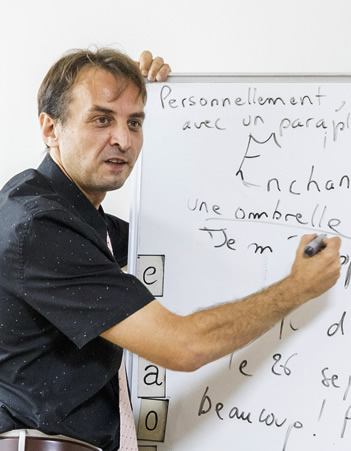 Personnellement,
avec un parapl
M
Enchan
une ombrelle
Je m'
d
le 26 sep
beaucoup!
e
a
o